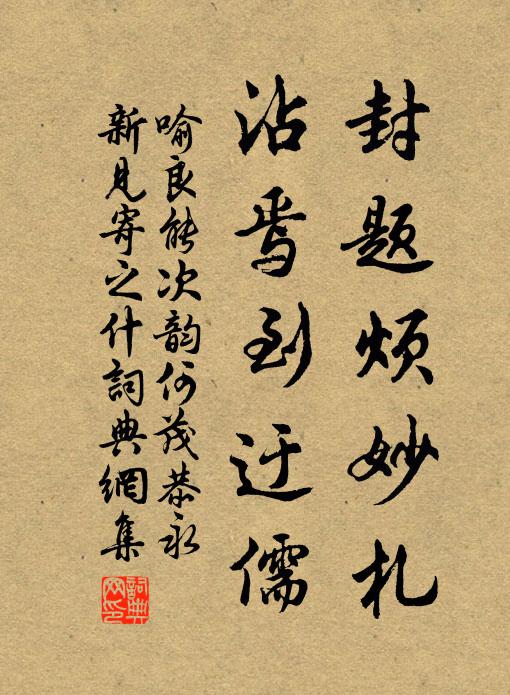 封题烦妙札
沾焉到迂儒
喻良能次韵何茂恭永
新见寄之什詞典網集
詞典網印